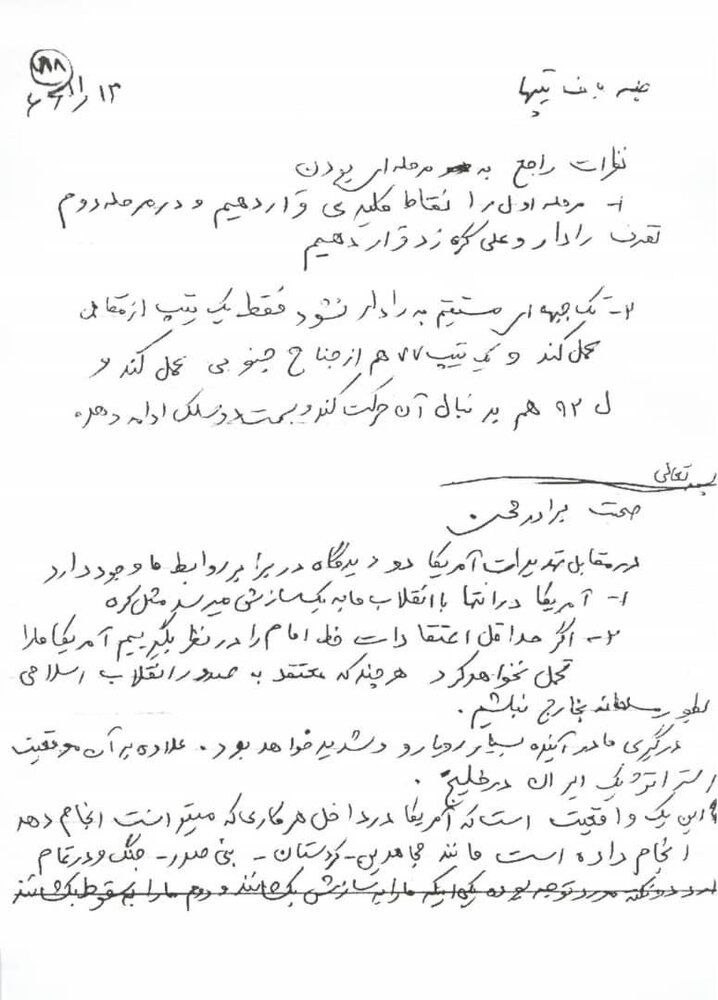 ۸۸
۱۳
جلسه با ف تیپها
نظرات راجع به مرحله‌ای بودن
۱- مرحله اول را نقاط کلیدی قرار دهیم و در مرحله دوم
تصرف رادار و علی گره زد قرار دهیم
۲- تک جبهه‌ای مستقیم به رادار نشود فقط یک تیپ از مقابل
عمل کند و یک تیپ ۷۷ هم از جناح جنوبی عمل کند و
ل ۹۲ هم بدنبال آن حرکت کند و بسمت دوسلک ادامه دهد
بسمه تعالی
صحبت برادر محسن
در مقابل تهدیدات آمریکا دو دیدگاه در برابر روابط ما وجود دارد
۱- آمریکا در انتها با انقلاب ما به یک سازشی میرسد مثل کره
۲- اگر حداقل اعتقادات خط امام را در نظر بگیریم آمریکا ما را
تحمل نخواهد کرد هر چند که معتقد به صدور انقلاب اسلامی
بطور مسلحانه بخارج نباشیم.
درگیری ما در آینده بسیار رویارو و شدید خواهد بود. علاوه بر آن موقعیت
استراتژیک ایران در خلیج.
این یک واقعیت است که آمریکا در داخل هر کاری که میتوانست انجام دهد
انجام داده است مانند مجاهدین - کردستان - بنی صدر - جنگ و در تمام
دو نکته مورد توجه بوده یکی اینکه ما را به سازش بکشانند و دوم ما را به سقوط بکشانند